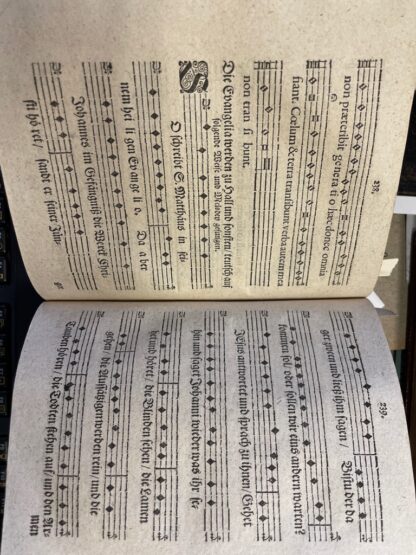 238.
non præteribit genera ti o hæc donec omnia
fiant. Cœlum & terra transibunt verba autem mea
non tran si bunt.
Die Evangelia werden zu Hall und sonsten teutsch auf
folgende Weise und Melodey gesungen.
SO schreibt S. Matthäus in sei-
nem hei li gen Evange li o. Da a ber
Johannes im Gefängniß die Werck Chri-
sti hö ret / sandte er seiner Jün-
ger
239.
ger zween und ließ ihm sagen / Bistu der da
kommen sol / oder sollen wir eins andern warten?
JEsus antwortet und sprach zu ihnen / Gehet
hin und saget Johanni wieder was ihr se-
het und höret / die Blinden sehen / die Lamen
gehen / die Aussätzigen werden rein / und die
Tauben hören / die Todten stehen auf / und den Ar-
men